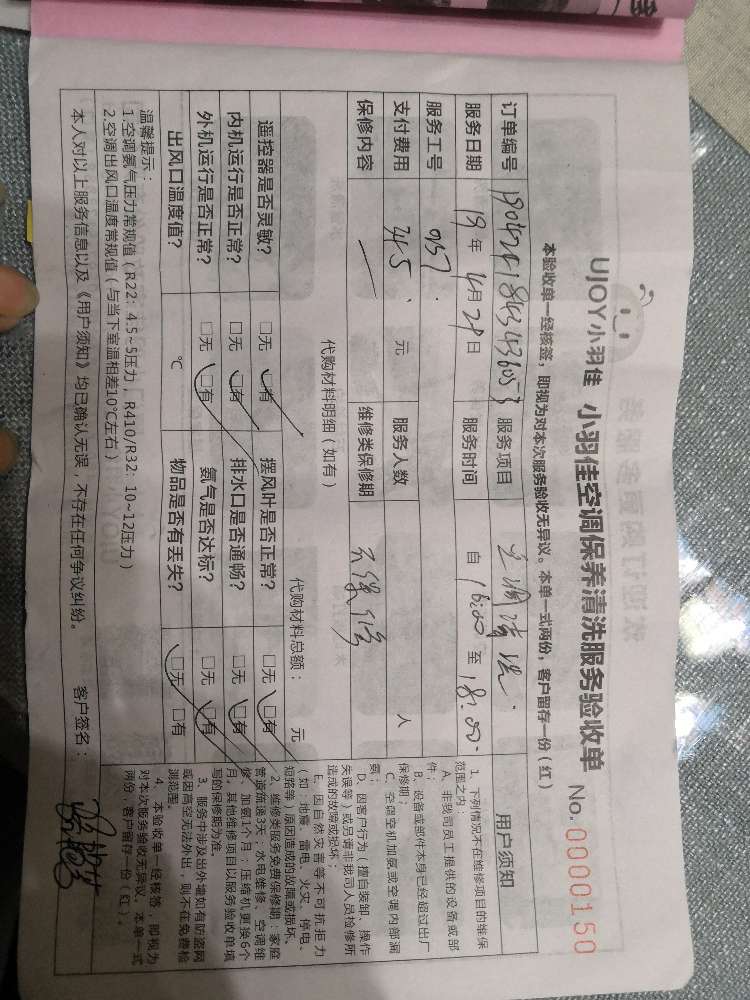 UJOY小羽佳 小羽佳空调保养清洗服务验收单 No. 0000150
本验收单一经核签，即视为对本次服务验收无异议。本单一式两份，客户留存一份（红）
订单编号 服务项目 空调清洗 用户须知
服务日期 19年4月28日 服务时间 自 16:00 至 18:00
服务工号 0157 服务人数 人
支付费用 345 元
保修内容 维修类保修期
代购材料明细（如有） 代购材料总额： 元
遥控器是否灵敏？ □无 □有 摆风叶是否正常？ □无 □有
内机运行是否正常？ □无 □有 排水口是否通畅？ □无 □有
外机运行是否正常？ □无 □有 氨气是否达标？ □无 □有
出风口温度值？ ℃ 物品是否有丢失？ □无 □有
温馨提示：
1.空调氨气压力常规值（R22：4.5~5压力，R410/R32：10~12压力）
2.空调出风口温度常规值（与当下室温相差10℃左右）
本人对以上服务信息以及《用户须知》均已确认无误，不存在任何争议纠纷。 客户签名：
1、下列情况不在维修项目的维保
范围之内
A、非我司员工提供的设备或部
件；
B、设备或部件本身已经超过出厂
保修期；
C、空调空机加氨或空调内部漏
氨；
D、因客户行为（擅自装卸、操作
失误等）或另请非我司人员检修所
造成的故障或损坏；
E、因自然灾害等不可抗拒力
（如：地震、雷电、火灾、停电、
短路等）原因造成的故障或损坏。
2、维修类服务免费保修期：家庭
管道疏通3天；水电维修、空调维
修、加氨1个月；压缩机更换6个
月，其他维修项目以服务验收单填
写的保修期为准。
3、服务中涉及出外墙如有防盗网
或因高空无法外出，则不在免费检
测范围。
4、本验收单一经核签，即视为
对本次服务验收无异议。本单一式
两份，客户留存一份（红）。